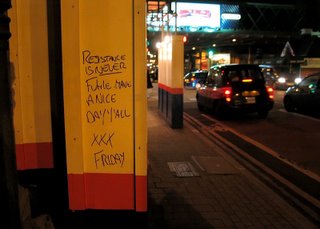 RESISTANCE
IS NEVER
FUTILE HAVE
A NICE
DAY Y'ALL
XXX
FRIDAY